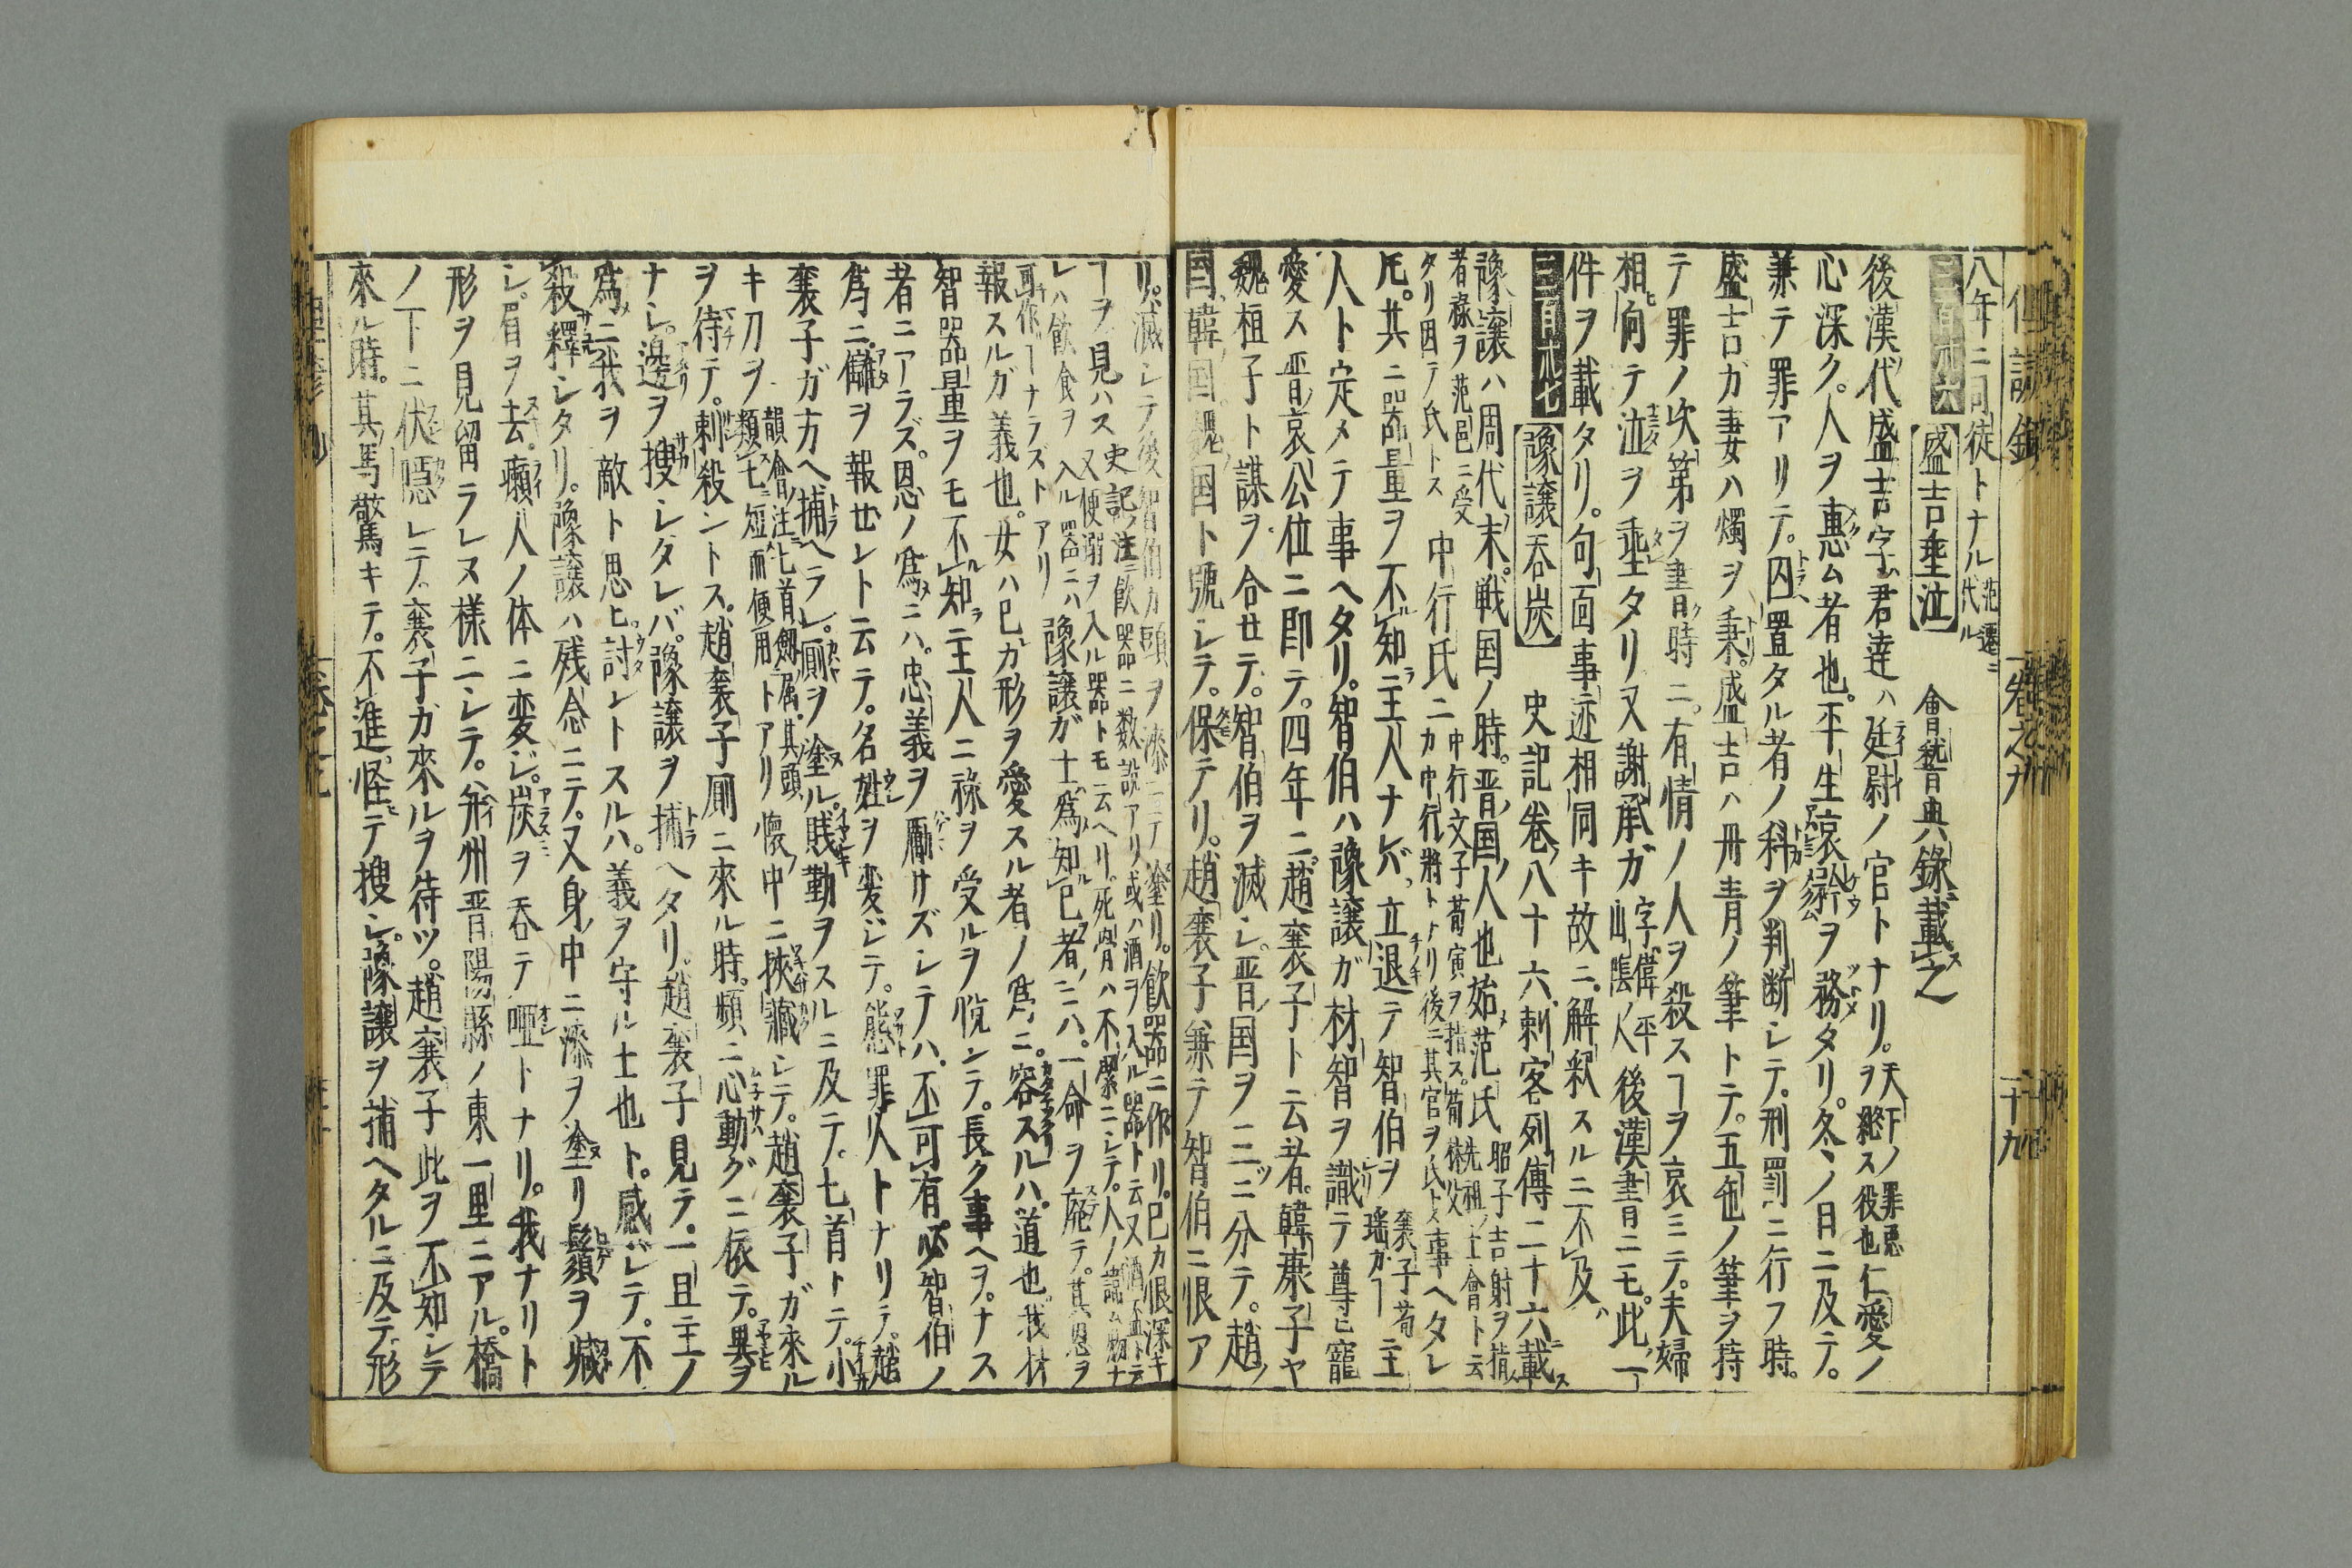 八年ニ同徒トナル 范遷ニ代ル
三百九十六 盛吉垂泣 會稽典錄ニ載ス之
後漢代盛吉字ハ君達ハ廷尉ノ官トナリ。天下ノ罪悪ヲ総ス役也 仁愛ノ
心深ク。人ヲ惠ム者也。平生哀矜ヲ務タリ。冬ノ日ニ及テ。
兼テ罪アリテ。囚置タル者ノ科ヲ判断シテ。刑罰ニ行フ時。
盛吉ガ妻ハ燭ヲ秉。盛吉ハ丹青ノ筆トテ。五色ノ筆ヲ持
テ罪ノ次第ヲ書ク時ニ。有情ノ人ヲ殺スヿヲ哀ミテ。夫婦
相向テ泣ヲ垂タリ又謝承ガ 字ハ偉平山陰ノ人 後漢書ニモ。此ノ一
件ヲ載タリ。句面事迹相同キ故ニ。解釈スルニ不及バ
三百九十七 豫讓吞炭 史記卷八十六刺客列傳二十六載ス
豫讓ハ周代末。戦国ノ時。晋国ノ人也始メ范氏 昭子吉射ヲ指ス先祖ノ士會ト云
者祿ヲ范邑ニ受タリ因テ氏トス 中行氏ニ 中行文子荀寅ヲ指ス。荀林父カ中行ノ將トナリ後ニ其官ヲ氏トス 事ヘタレ
𪜈。其ニ器量ヲ不知ラ主人ナレバ。立退テ智伯ヲ 襄子荀瑶ガヿ 主
人ト定メテ事ヘタリ。智伯ハ豫讓ガ材智ヲ識テ尊ヒ寵
愛ス晋ノ哀公位ニ即テ。四年ニ。趙襄子ト云者。韓康子ヤ
魏桓子ト謀ヲ合セテ。智伯ヲ滅シ。晋国ヲ三ツニ分テ。趙
国韓国魏国ト號シテ。保テリ。趙襄子兼テ智伯ニ恨ア
リ。滅シテ後智伯カ頭ヲ漆ニテ塗リ。飲器ニ作リ。己カ恨深キ
ヿヲ見ハス 史記ノ注ニ飲器ニ数説アリ或ハ酒ヲ入ル器ト云又酒盃トテ
豫讓ガ士ハ為ニ知ル己者ノニハ。一命ヲ廃テ。其恩ヲ
報スルガ義也。女ハ己ガ形ヲ愛スル者ノ為ニ。容スルハ。道也我材
智器量ヲモ不知ラ主人ニ祿ヲ受ルヲ悦ンテ。長ク事ヘヲ。ナス
者ニアラズ。恩ノ為ニハ。忠義ヲ勵サズシテハ。不可有必智伯ノ
為ニ。讎ヲ報ゼントテ。名姓ヲ変シテ。態罪人トナリテ。趙
襄子ガ方ヘ捕ヘラレ。厠ヲ塗ル。賤勤ヲスルニ及テ。匕首トテ。小
キ刀ヲ 韻會ノ注ニ匕首劔属。其頭類匕ニ短而便用トアリ 懐中ニ挾藏シテ。趙襄子ガ來ル
ヲ待テ。刺殺ントス。趙襄子厠ニ來ル時。頻ニ心動グニ依テ。異ヲ
ナシ。邊ヲ捜シタレバ。豫讓ヲ捕ヘタリ。趙襄子見テ。一旦主ノ
為ニ我ヲ敵ト思ヒ。討ントスルハ。義ヲ守ル士也ト。感ジテ。不
殺釋シタリ。豫讓ハ残念ニテ。又身ノ中ニ漆ヲ塗リ鬚ヲ
シ。眉ヲ去。癩人ノ体ニ変ジ。炭ヲ吞テ唖トナリ。我ナリト
形ヲ見留ラレヌ様ニシテ。并州晋陽縣ノ東一里ニアル。橋
ノ下ニ伏隠レテ。襄子ガ來ルヲ待ツ。趙襄子此ヲ不知シテ
來ル時。其馬驚キテ。不進。怪テ捜シ。豫讓ヲ捕ヘタルニ及テ。形